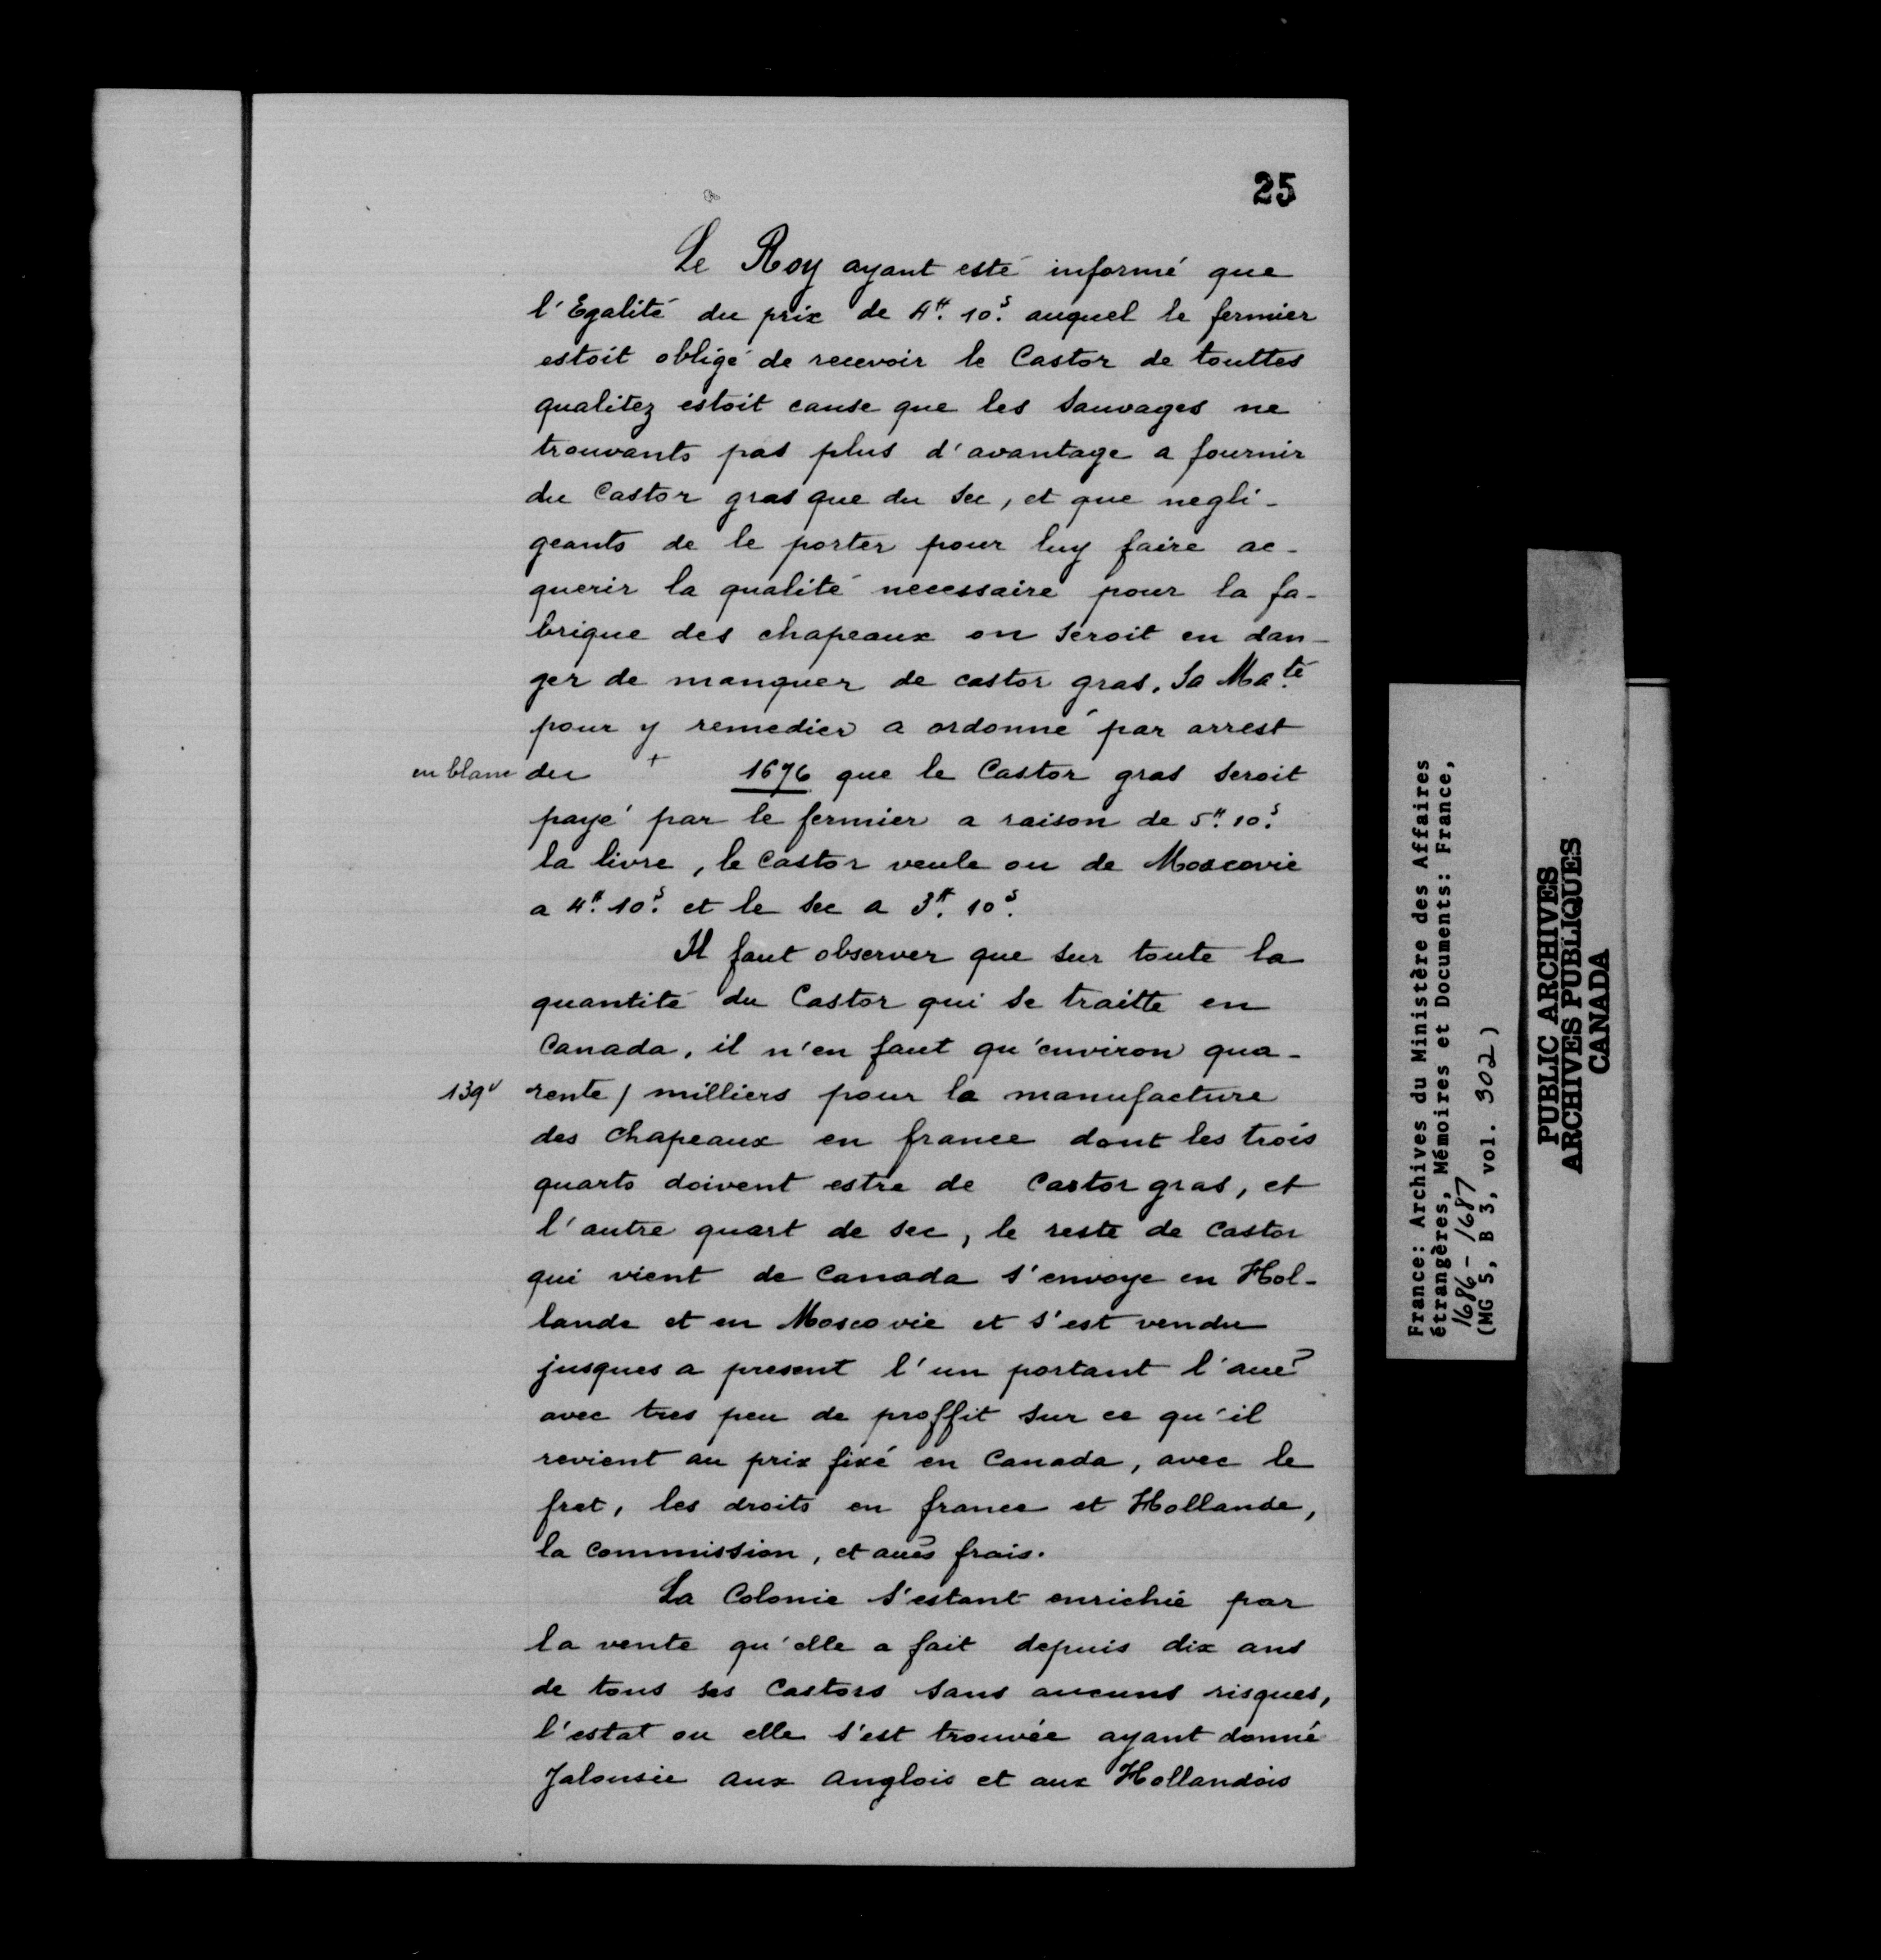 25
Le Roy ayant esté informé que
l'Egalité du prix de 4ᵗᵗ. 10ˢ. auquel le fermier
estoit obligé de recevoir le Castor de touttes
qualitez estoit cause que les Sauvages ne
trouvants pas plus d'avantage a fournir
du Castor gras que du Sec, et que negli-
geants de le porter pour luy faire ac-
querir la qualité necessaire pour la fa-
brique des chapeaux on seroit en dan-
ger de manquer de castor gras, Sa Maᵗé
pour y remedier a ordonné par arrest
en blanc du + 1676 que le Castor gras seroit
payé par le fermier a raison de 5ᵗᵗ. 10ˢ.
la livre, le castor veule ou de Moscovie
a 4ᵗᵗ. 10ˢ. et le Sec a 3ᵗᵗ. 10ˢ.
Il faut observer que sur toute la
quantité du Castor qui se traitte en
Canada, il n'en faut qu'environ qua-
139ᵛ rente / milliers pour la manufacture
des chapeaux en france dont les trois
quarts doivent estre de Castor gras, et
l'autre quart de sec, le reste de Castor
qui vient de Canada s'envoye en Hol-
lande et en Moscovie et s'est vendu
jusques a present l'un portant l'aue
avec tres peu de proffit sur ce qu'il
revient au prix fixé en Canada, avec le
fret, les droits en france et Hollande,
la Commission, et aues frais.
La Colonie s'estant enrichie par
la vente qu'elle a fait depuis dix ans
de tous ses Castors sans aucuns risques,
l'estat ou elle s'est trouvée ayant donné
Jalousie aux Anglois et aux Hollandois
France: Archives du Ministère des Affaires
étrangères, Mémoires et Documents: France,
1686-1687
(MG 5, B 3, vol. 302)
PUBLIC ARCHIVES
ARCHIVES PUBLIQUES
CANADA